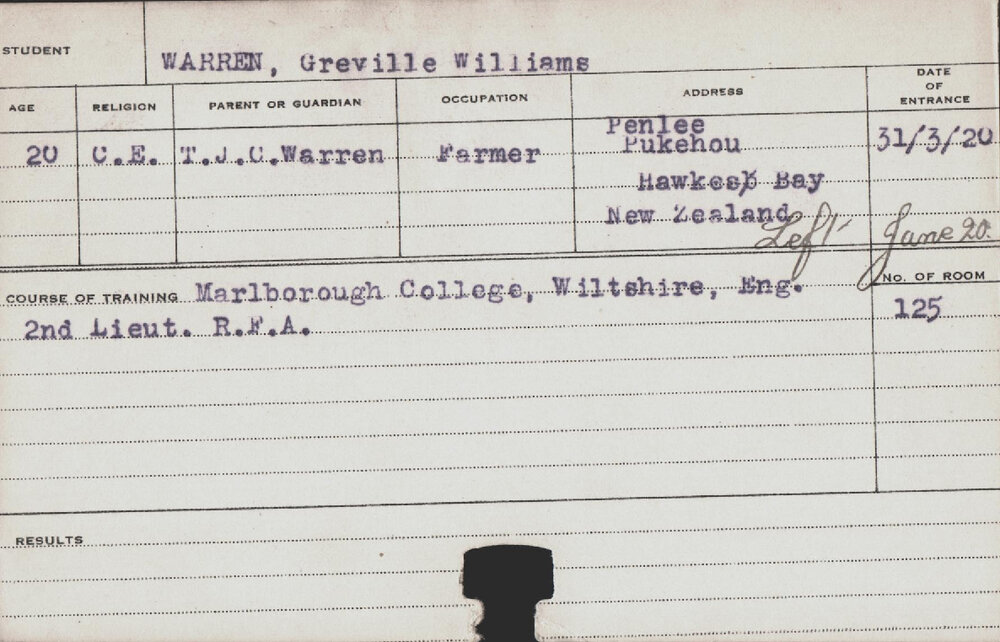 STUDENT WARREN, Greville Williams
AGE RELIGION PARENT OR GUARDIAN OCCUPATION ADDRESS DATE OF ENTRANCE
Penlee
20 C.E. T.J.C.Warren Farmer Pukehou 31/3/20
Hawkes Bay
New Zealand
Left June 20.
COURSE OF TRAINING Marlborough College, Wiltshire, Eng. No. OF ROOM
2nd Lieut. R.F.A. 125
RESULTS